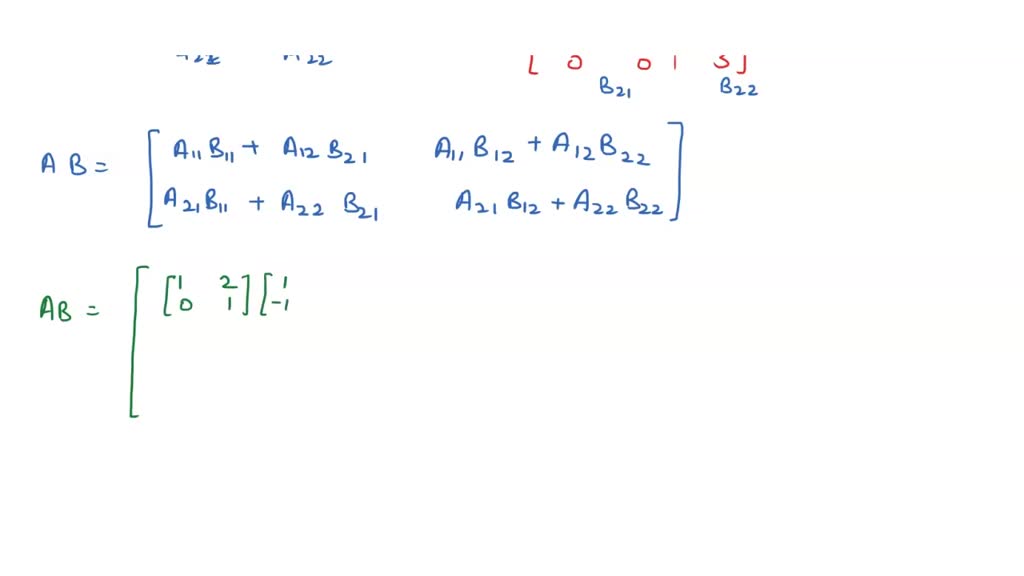 A22
[ 0 0 1 5]
B21 B22
AB = [ A11 B11 + A12 B21 A11 B12 + A12 B22
A21 B11 + A22 B21 A21 B12 + A22 B22 ]
AB = [ [1 2 [1
0 1] -1